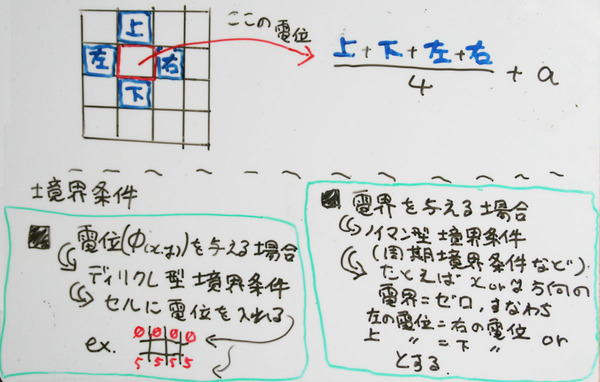 上
左 右
下
ここの電位
上+下+左+右
4
+ a
境界条件
■ 電位(Φ(x,y))を与える場合
ディリクレ型境界条件
セルに電位を入れる
ex.
0 0 0 0
5 5 5 5
■ 電界を与える場合
ノイマン型境界条件
(周期境界条件など)
たとえば x or y 方向の
電界=ゼロ,すなわち
左の電位=右の電位 or
上 〃 = 下 〃
とする.